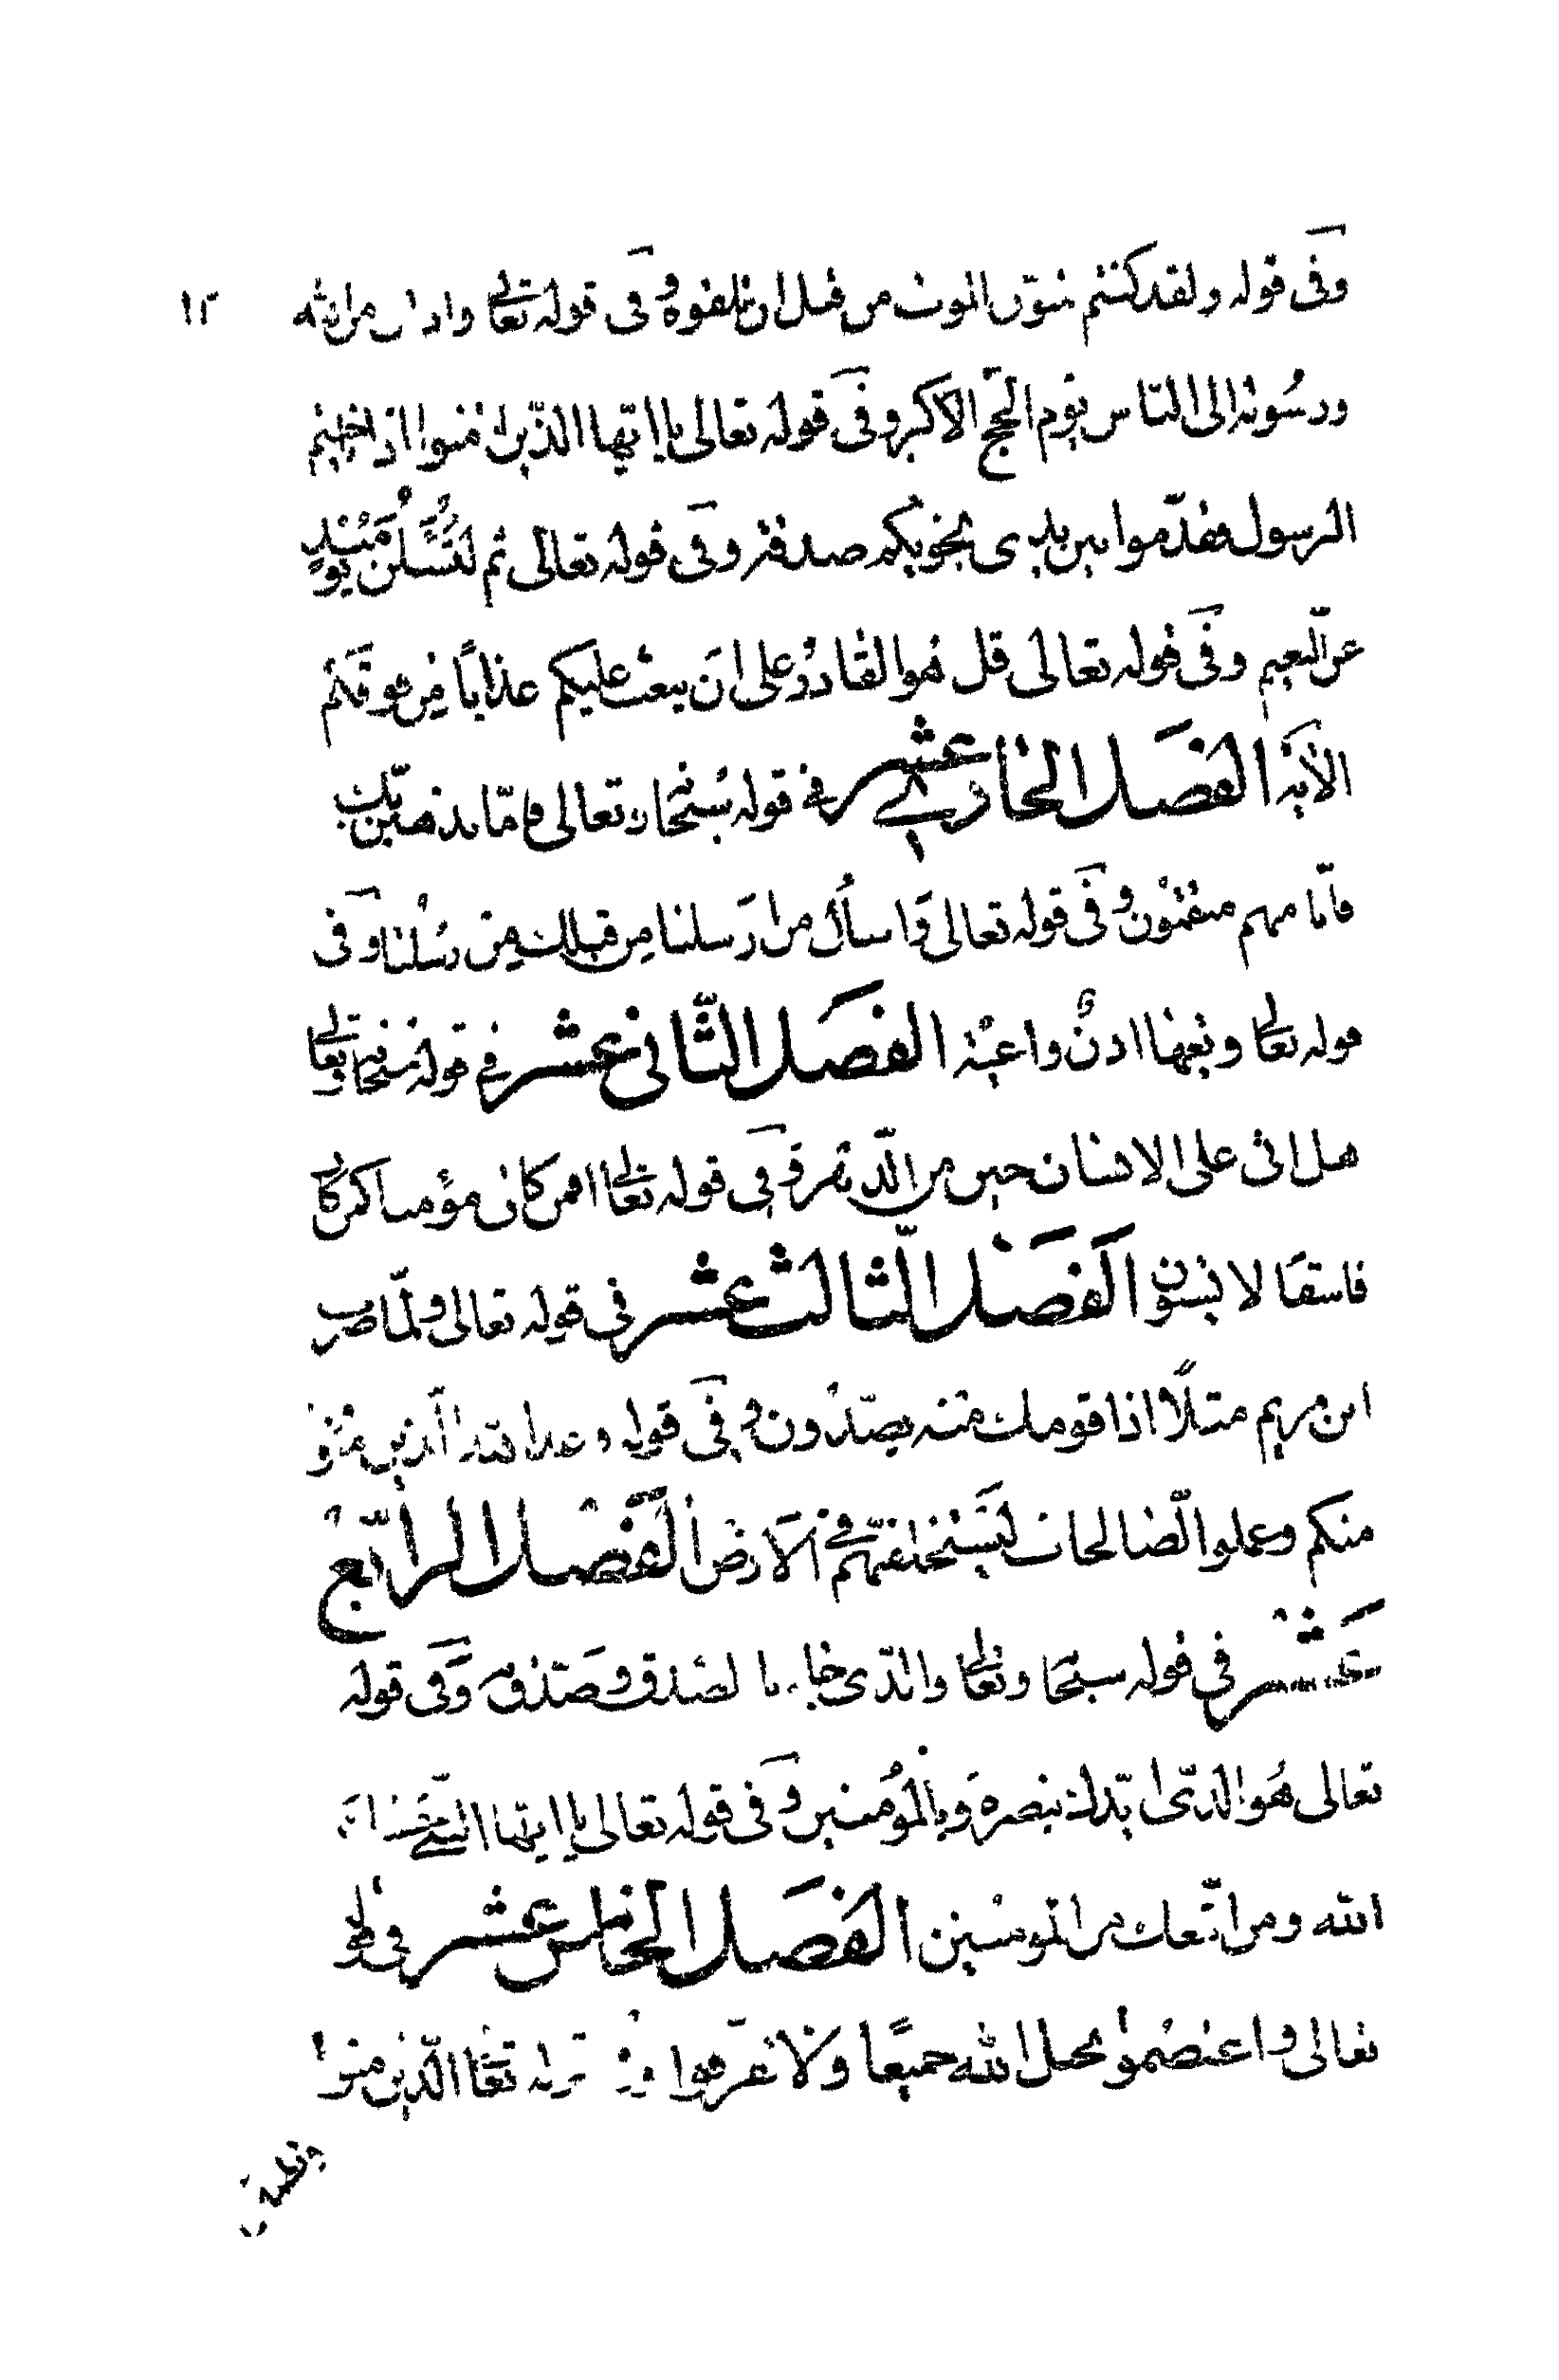 ١٢
وفى قوله ولقد كنتم تمنون الموت من قبل ان تلقوه وفى قوله تعالى واذان من الله
ورسوله الى الناس يوم الحج الاكبر وفى قوله تعالى يا ايها الذين امنوا اذا ناجيتم
الرسول فقدموا بين يدى نجويكم صدقة وفى قوله تعالى ثم لتسئلن يومئذ
عن النعيم وفى قوله تعالى قل هو القادر على ان يبعث عليكم عذابا من فوقكم
الاية الفصل الحادى عشر فى قوله سبحانه وتعالى فاما نذهبن بك
فانا منهم منتقمون وفى قوله تعالى واسأل من ارسلنا من قبلك من رسلنا وفى
قوله تعالى وتعيها اذن واعية الفصل الثانى عشر فى قوله سبحانه وتعالى
هل اتى على الانسان حين من الدهر وفى قوله تعالى افمن كان مؤمنا كمن كان
فاسقا لا يستوون الفصل الثالث عشر فى قوله تعالى ولما ضرب
ابن مريم مثلا اذا قومك منه يصدون وفى قوله وعد الله الذين امنوا
منكم وعملوا الصالحات ليستخلفنهم فى الارض الفصل الرابع
عشر فى قوله سبحانه وتعالى والذى جاء بالصدق وصدق به وفى قوله
تعالى هو الذى ايدك بنصره وبالمؤمنين وفى قوله تعالى يا ايها النبى حسبك
الله ومن اتبعك من المومنين الفصل الخامس عشر فى قوله
تعالى واعتصموا بحبل الله جميعا ولا تفرقوا وفى قوله تعالى الذين امنوا